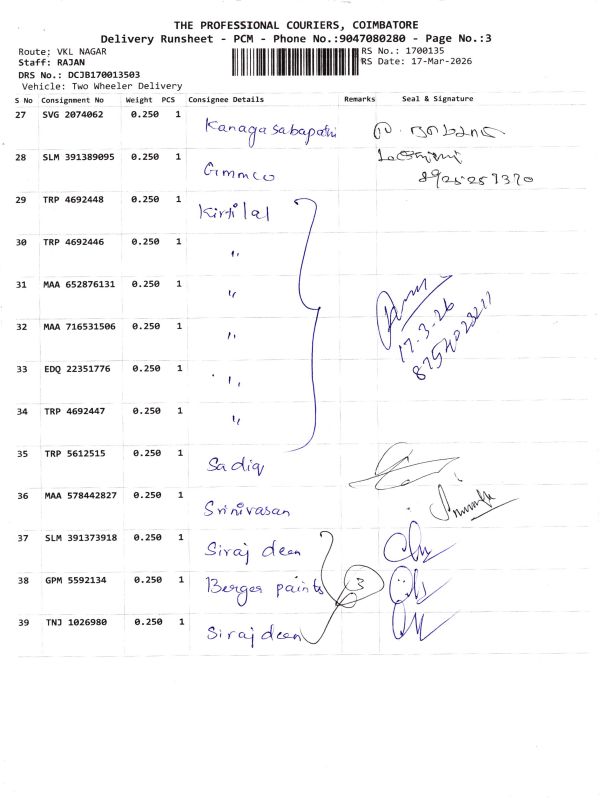 THE PROFESSIONAL COURIERS, COIMBATORE
Delivery Runsheet - PCM - Phone No.:9047080280 - Page No.:3
Route: VKL NAGAR RS No.: 1700135
Staff: RAJAN RS Date: 17-Mar-2026
DRS No.: DCJB170013503
Vehicle: Two Wheeler Delivery
S No Consignment No Weight PCS Consignee Details Remarks Seal & Signature
27 SVG 2074062 0.250 1 Kanagasabapathi
28 SLM 391389095 0.250 1 Gimmco 8925259370
29 TRP 4692448 0.250 1 Kirtilal
30 TRP 4692446 0.250 1 "
31 MAA 652876131 0.250 1 "
17.3.26
32 MAA 716531506 0.250 1 "
33 EDQ 22351776 0.250 1 "
34 TRP 4692447 0.250 1 "
35 TRP 5612515 0.250 1 Sadiq
36 MAA 578442827 0.250 1 Srinivasan
37 SLM 391373918 0.250 1 Siraj deen
38 GPM 5592134 0.250 1 Berger paints 3
39 TNJ 1026980 0.250 1 Siraj deen